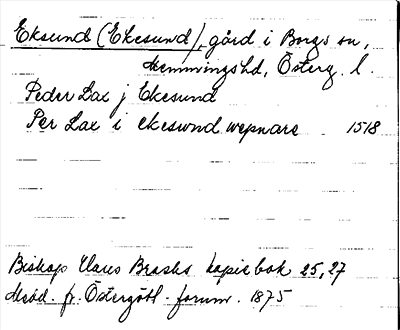 Eksund (Ekesund), gård i Borgs sn,
Memmings hd, Österg. l.
Peder Lax j Ekesund
Per Lax i ekeswnd wepnare 1518
Biskop Hans Brasks kopiebok 25, 27
Medd. fr. Östergötl. fornm. 1875